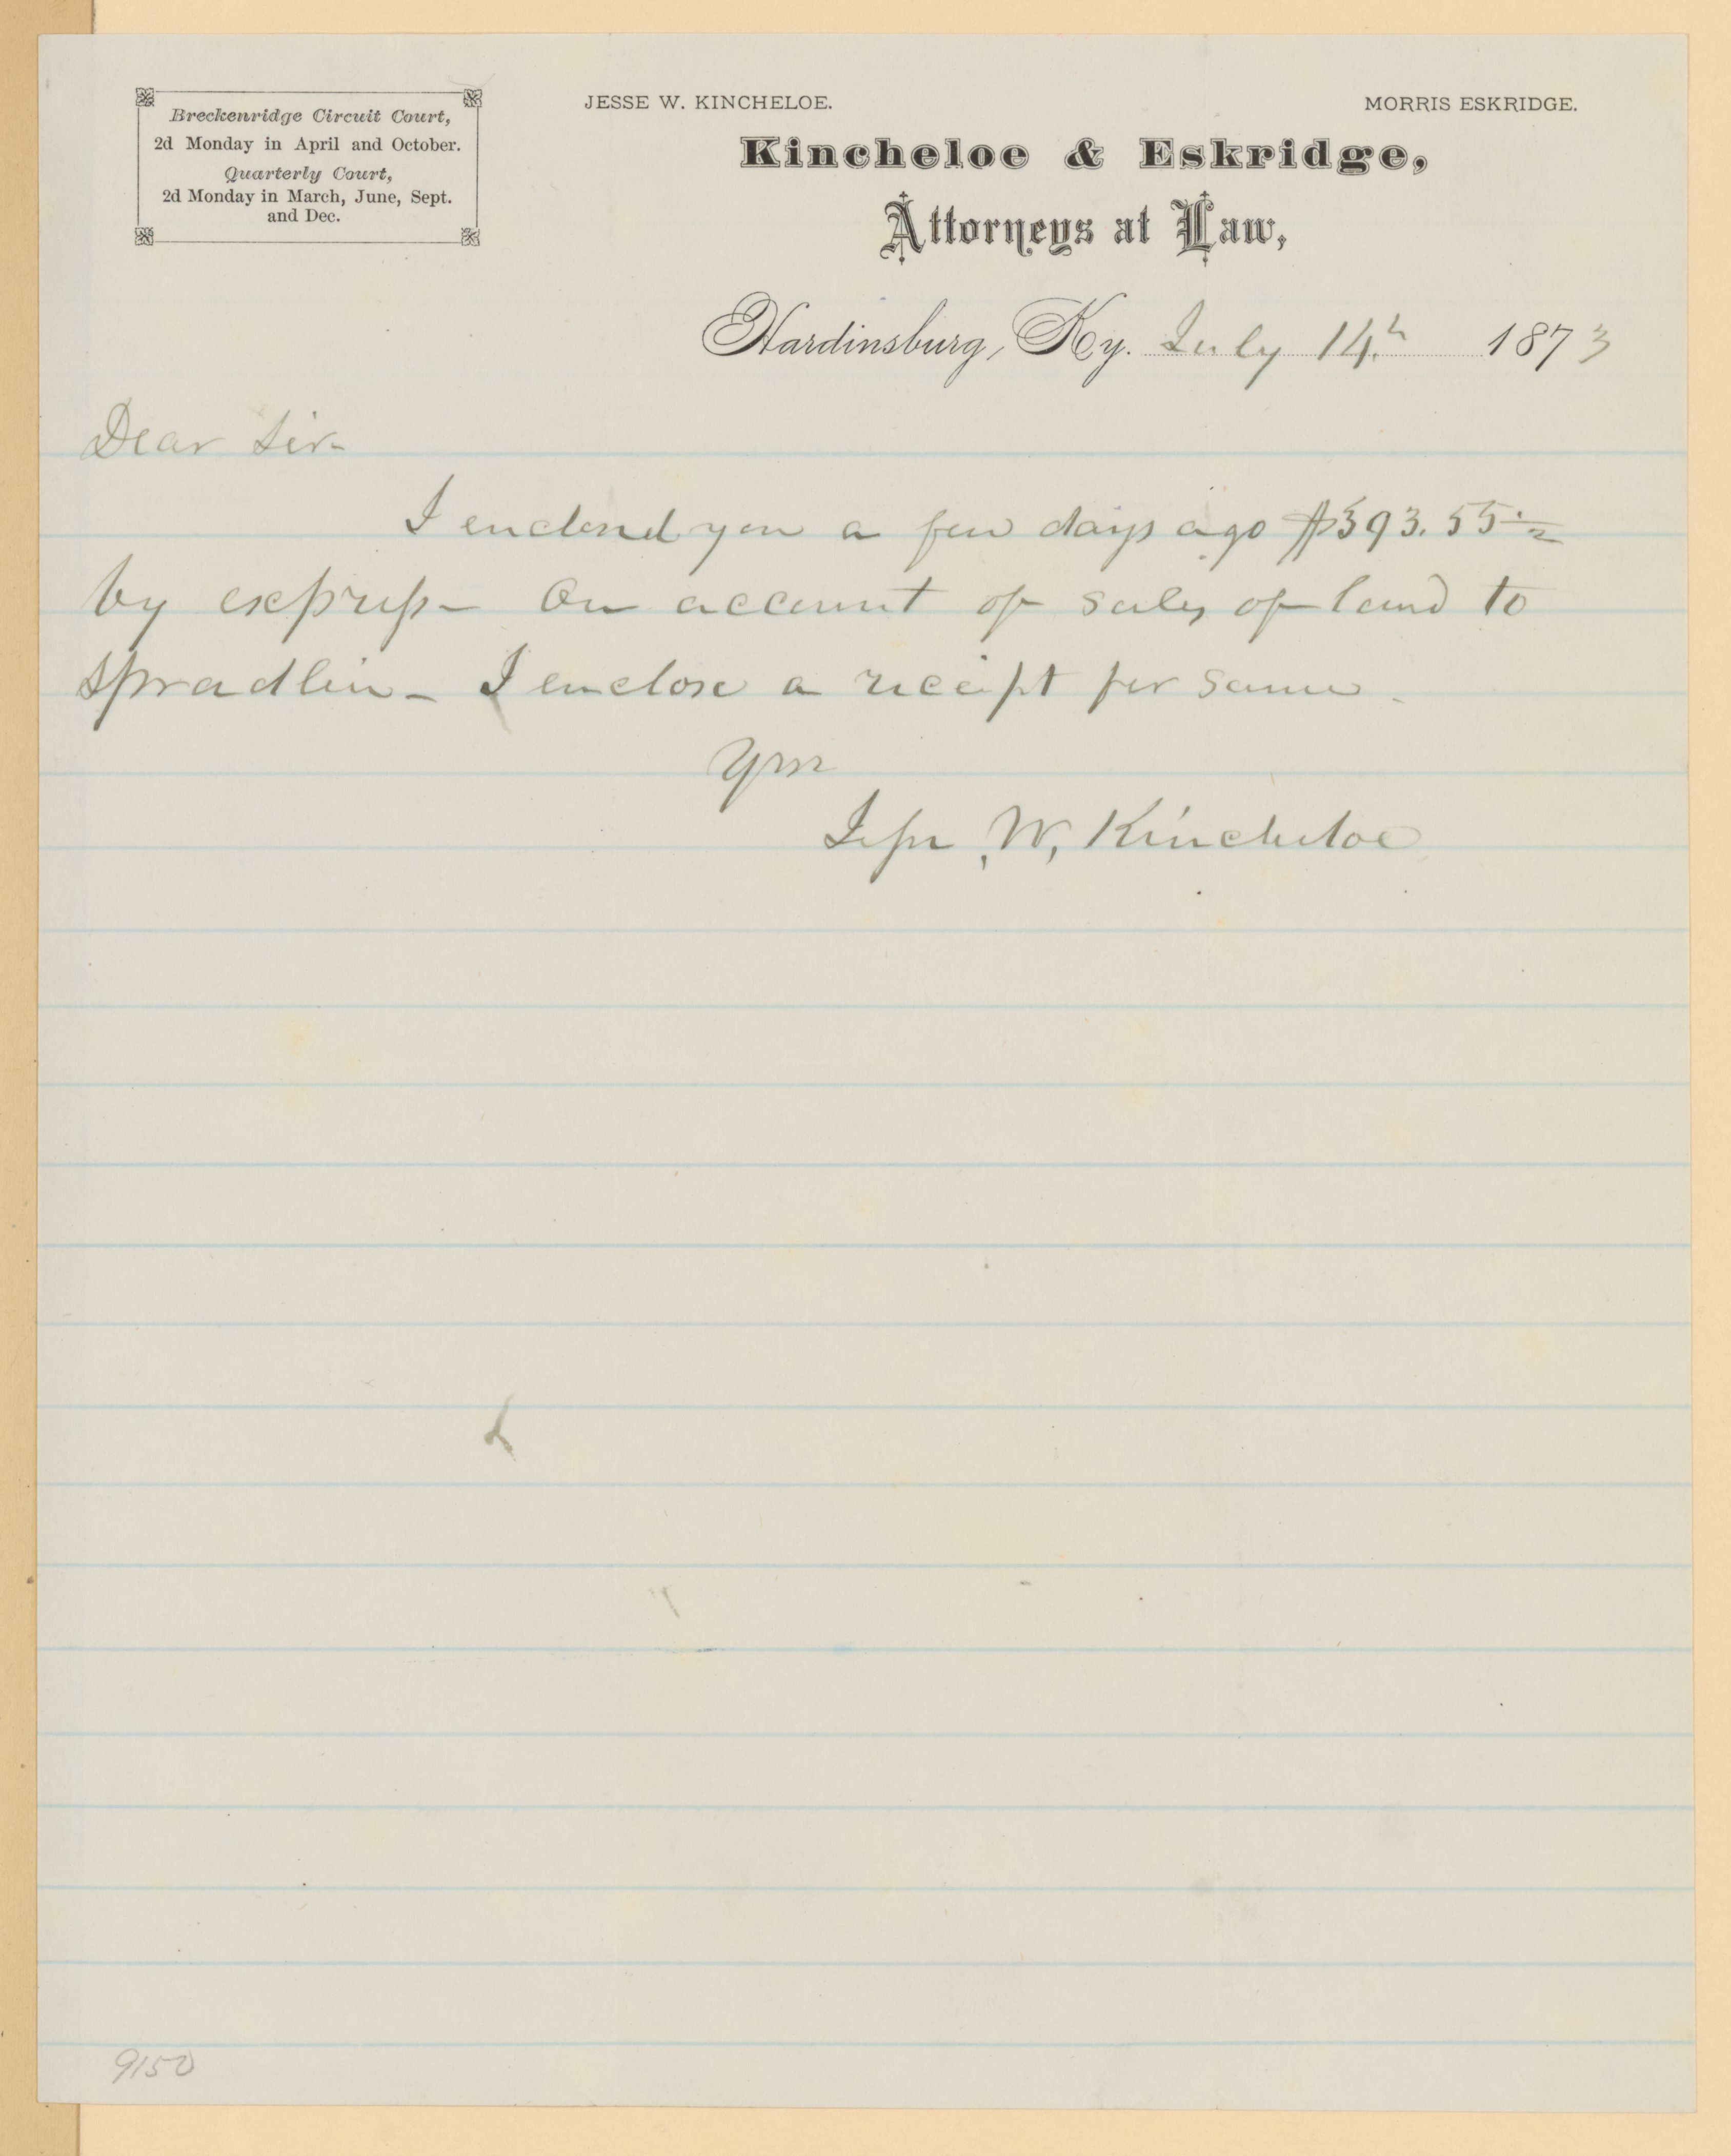 Breckenridge Circuit Court,
2d Monday in April and October.
Quarterly Court,
2d Monday in March, June, Sept.
and Dec.
JESSE W. KINCHELOE.
MORRIS ESKRIDGE.
Kincheloe & Eskridge,
Attorneys at Law,
Hardinsburg, Ky. July 14th 1873
Dear Sir-
I enclosed you a few days ago $393.55
by express - On account of sales of land to
Spradlin - I enclose a receipt for same -
Yrs
Jesse W. Kincheloe
9150